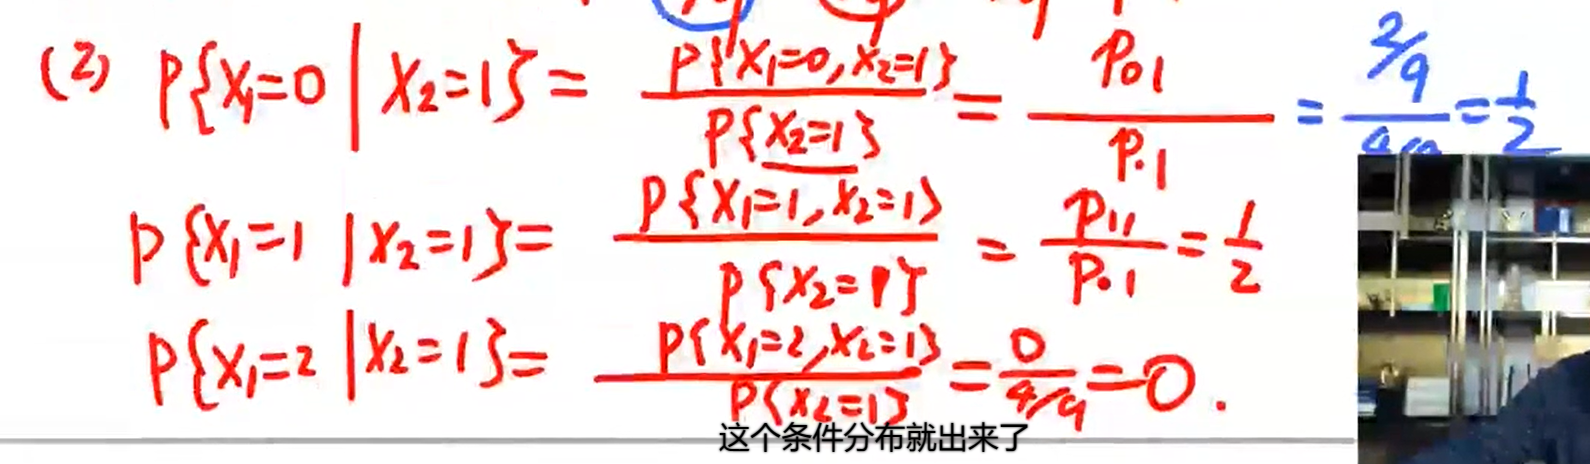 (2) P{X₁=0 | X₂=1} = P{X₁=0,X₂=1} / P{X₂=1} = P₀₁ / P.₁ = 2/9 / 4/9 = 1/2
P{X₁=1 | X₂=1} = P{X₁=1,X₂=1} / P{X₂=1} = P₁₁ / P.₁ = 1/2
P{X₁=2 | X₂=1} = P{X₁=2,X₂=1} / P{X₂=1} = 0 / 4/9 = 0.
这个条件分布就出来了